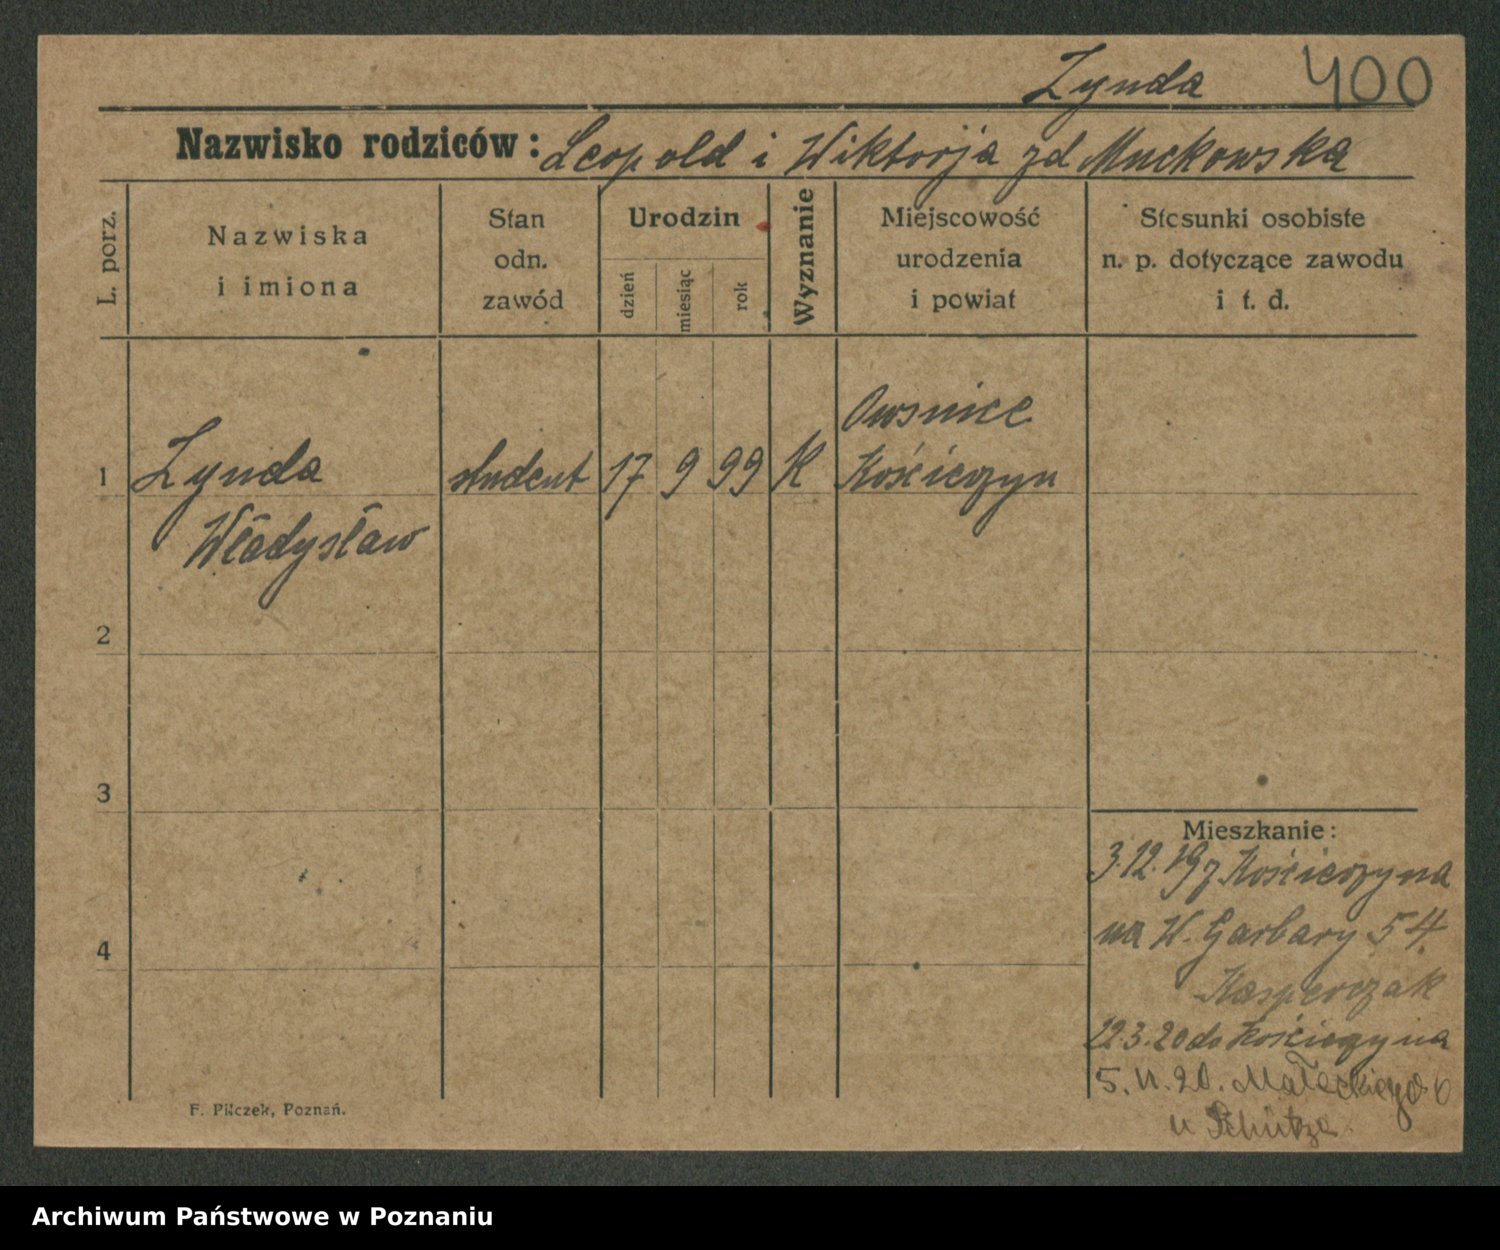 Zynda 400
Nazwisko rodziców: Leopold i Wiktorja zd Muckowska
L. porz.
Nazwiska i imiona
Stan odn. zawód
Urodzin
dzień
miesiąc
rok
Wyznanie
Miejscowość urodzenia i powiat
Stosunki osobiste n. p. dotyczące zawodu i t. d.
Owsnice
1 Zynda student 17 9 99 K Kościerzyn
Władysław
2
3
4
Mieszkanie:
3.12.19 z Kościerzyna
na W. Garbary 54.
Kasperczak
22.3.20 do Kościerzyna
5. 20. Małeckiego
u Schütza
F. Pilczek, Poznań.
Archiwum Państwowe w Poznaniu